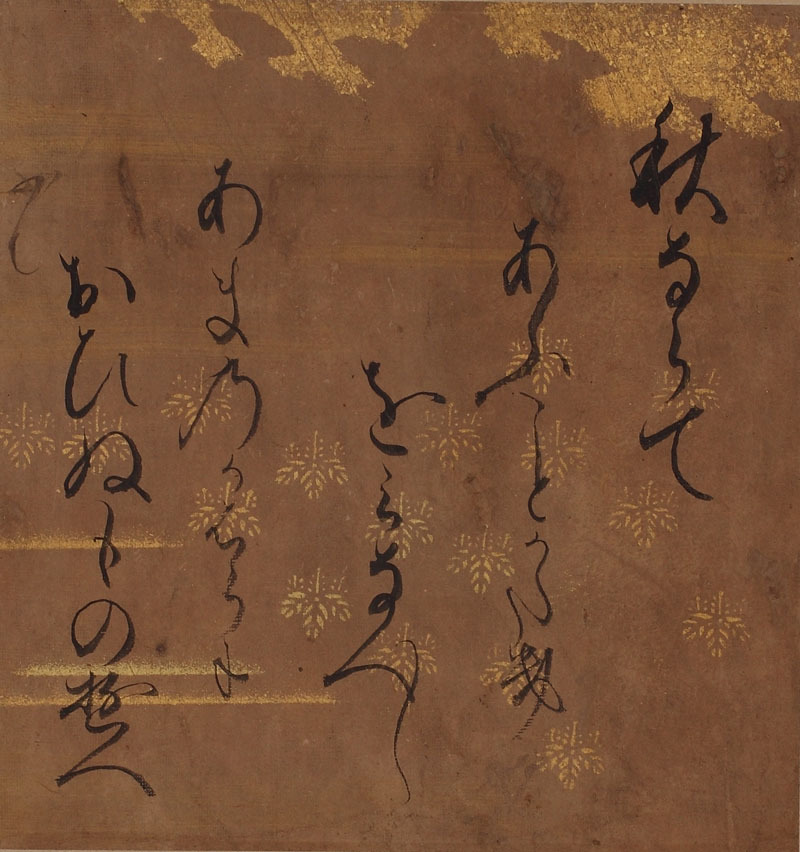 秋ならて
あふことかたき
をみなへし
あまのかはらに
おひぬものゆへ